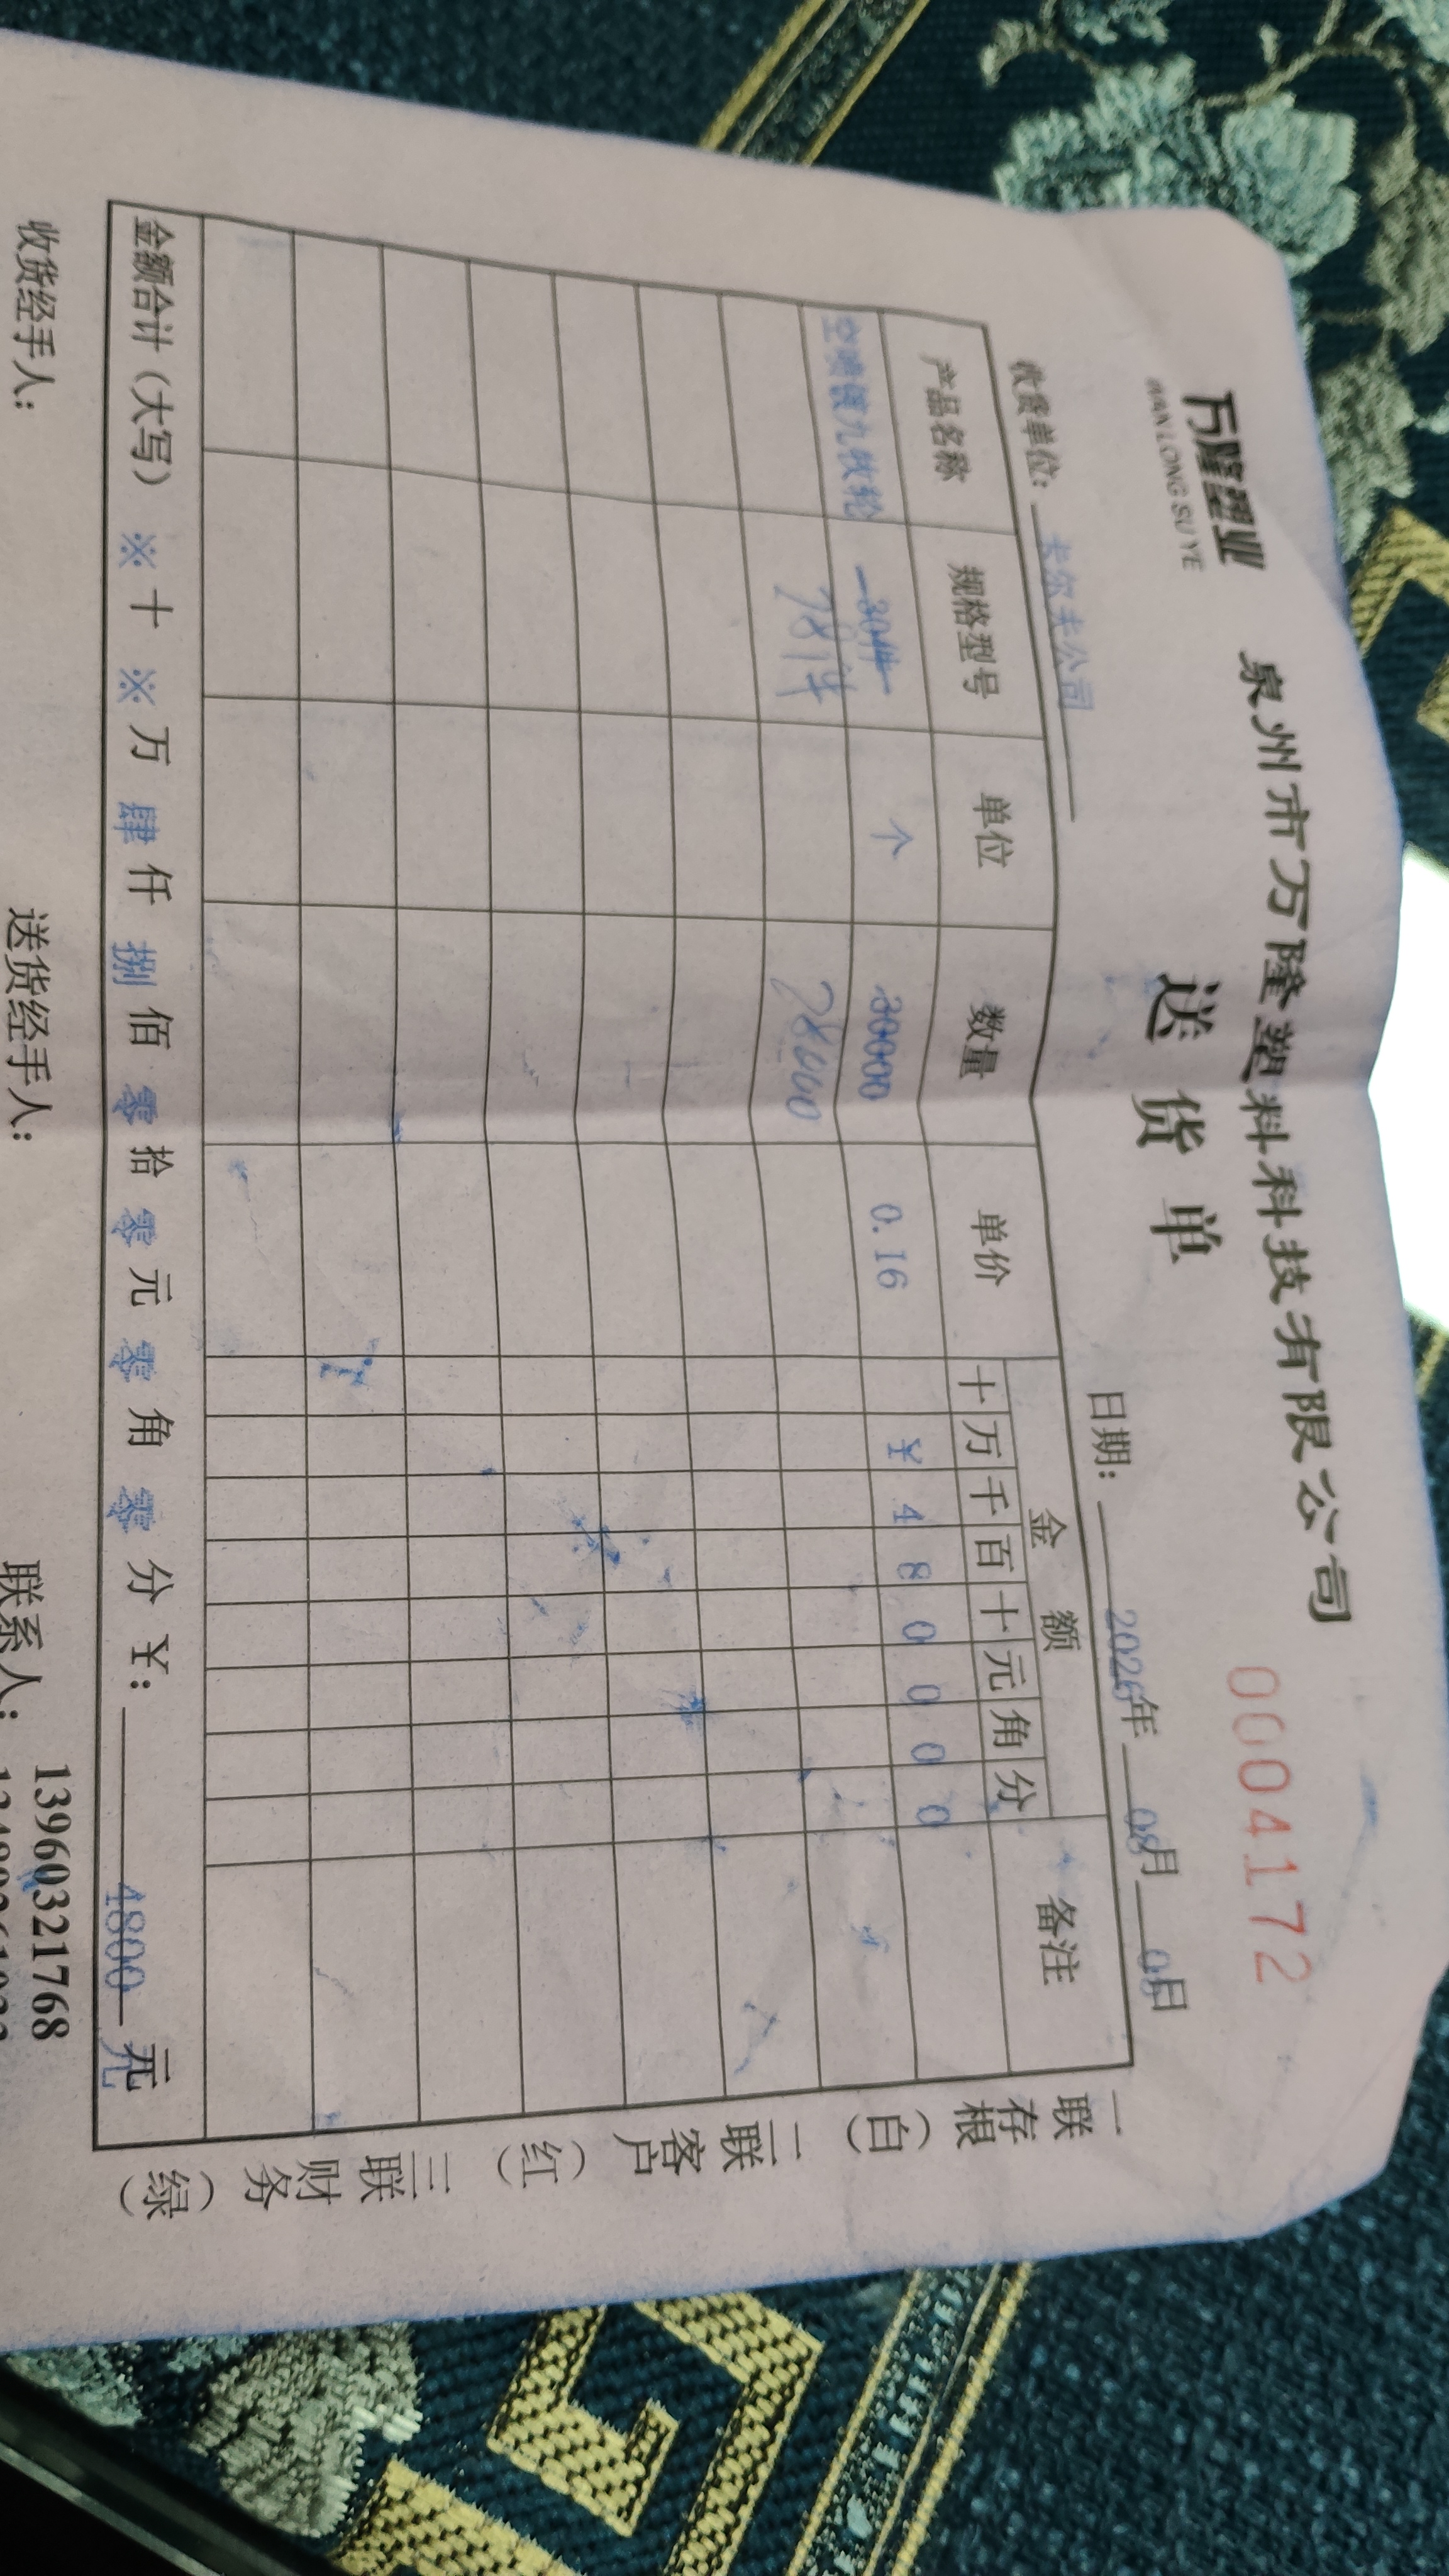 万隆塑业
WAN LONG SU YE
泉州市万隆塑料科技有限公司
0004172
送货单
收货单位: 卡尔夫公司 日期: 2026年08月08日
产品名称 规格型号 单位 数量 单价 金额 备注
十万千百十元角分
30件 个 30000 0.16 ¥480000
28件 28000
金额合计(大写) ※十※万肆仟捌佰零拾零元零角零分 ¥: 4800元
收货经手人: 送货经手人: 联系人: 13960321768
一联存根(白) 二联客户(红) 三联财务(绿)